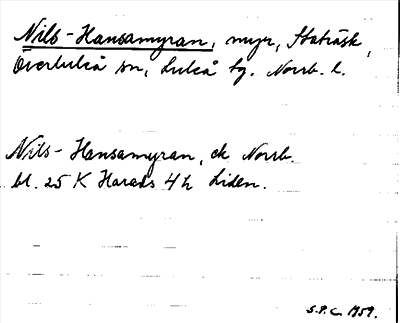 Nils-Hansamyran, myr, Staträsk,
Överluleå sn, Luleå tg. Norrb. l.
Nils-Hansamyran, ek Norrb.
bl. 25 K Harads 4h Liden.
S.P.C. 1959.